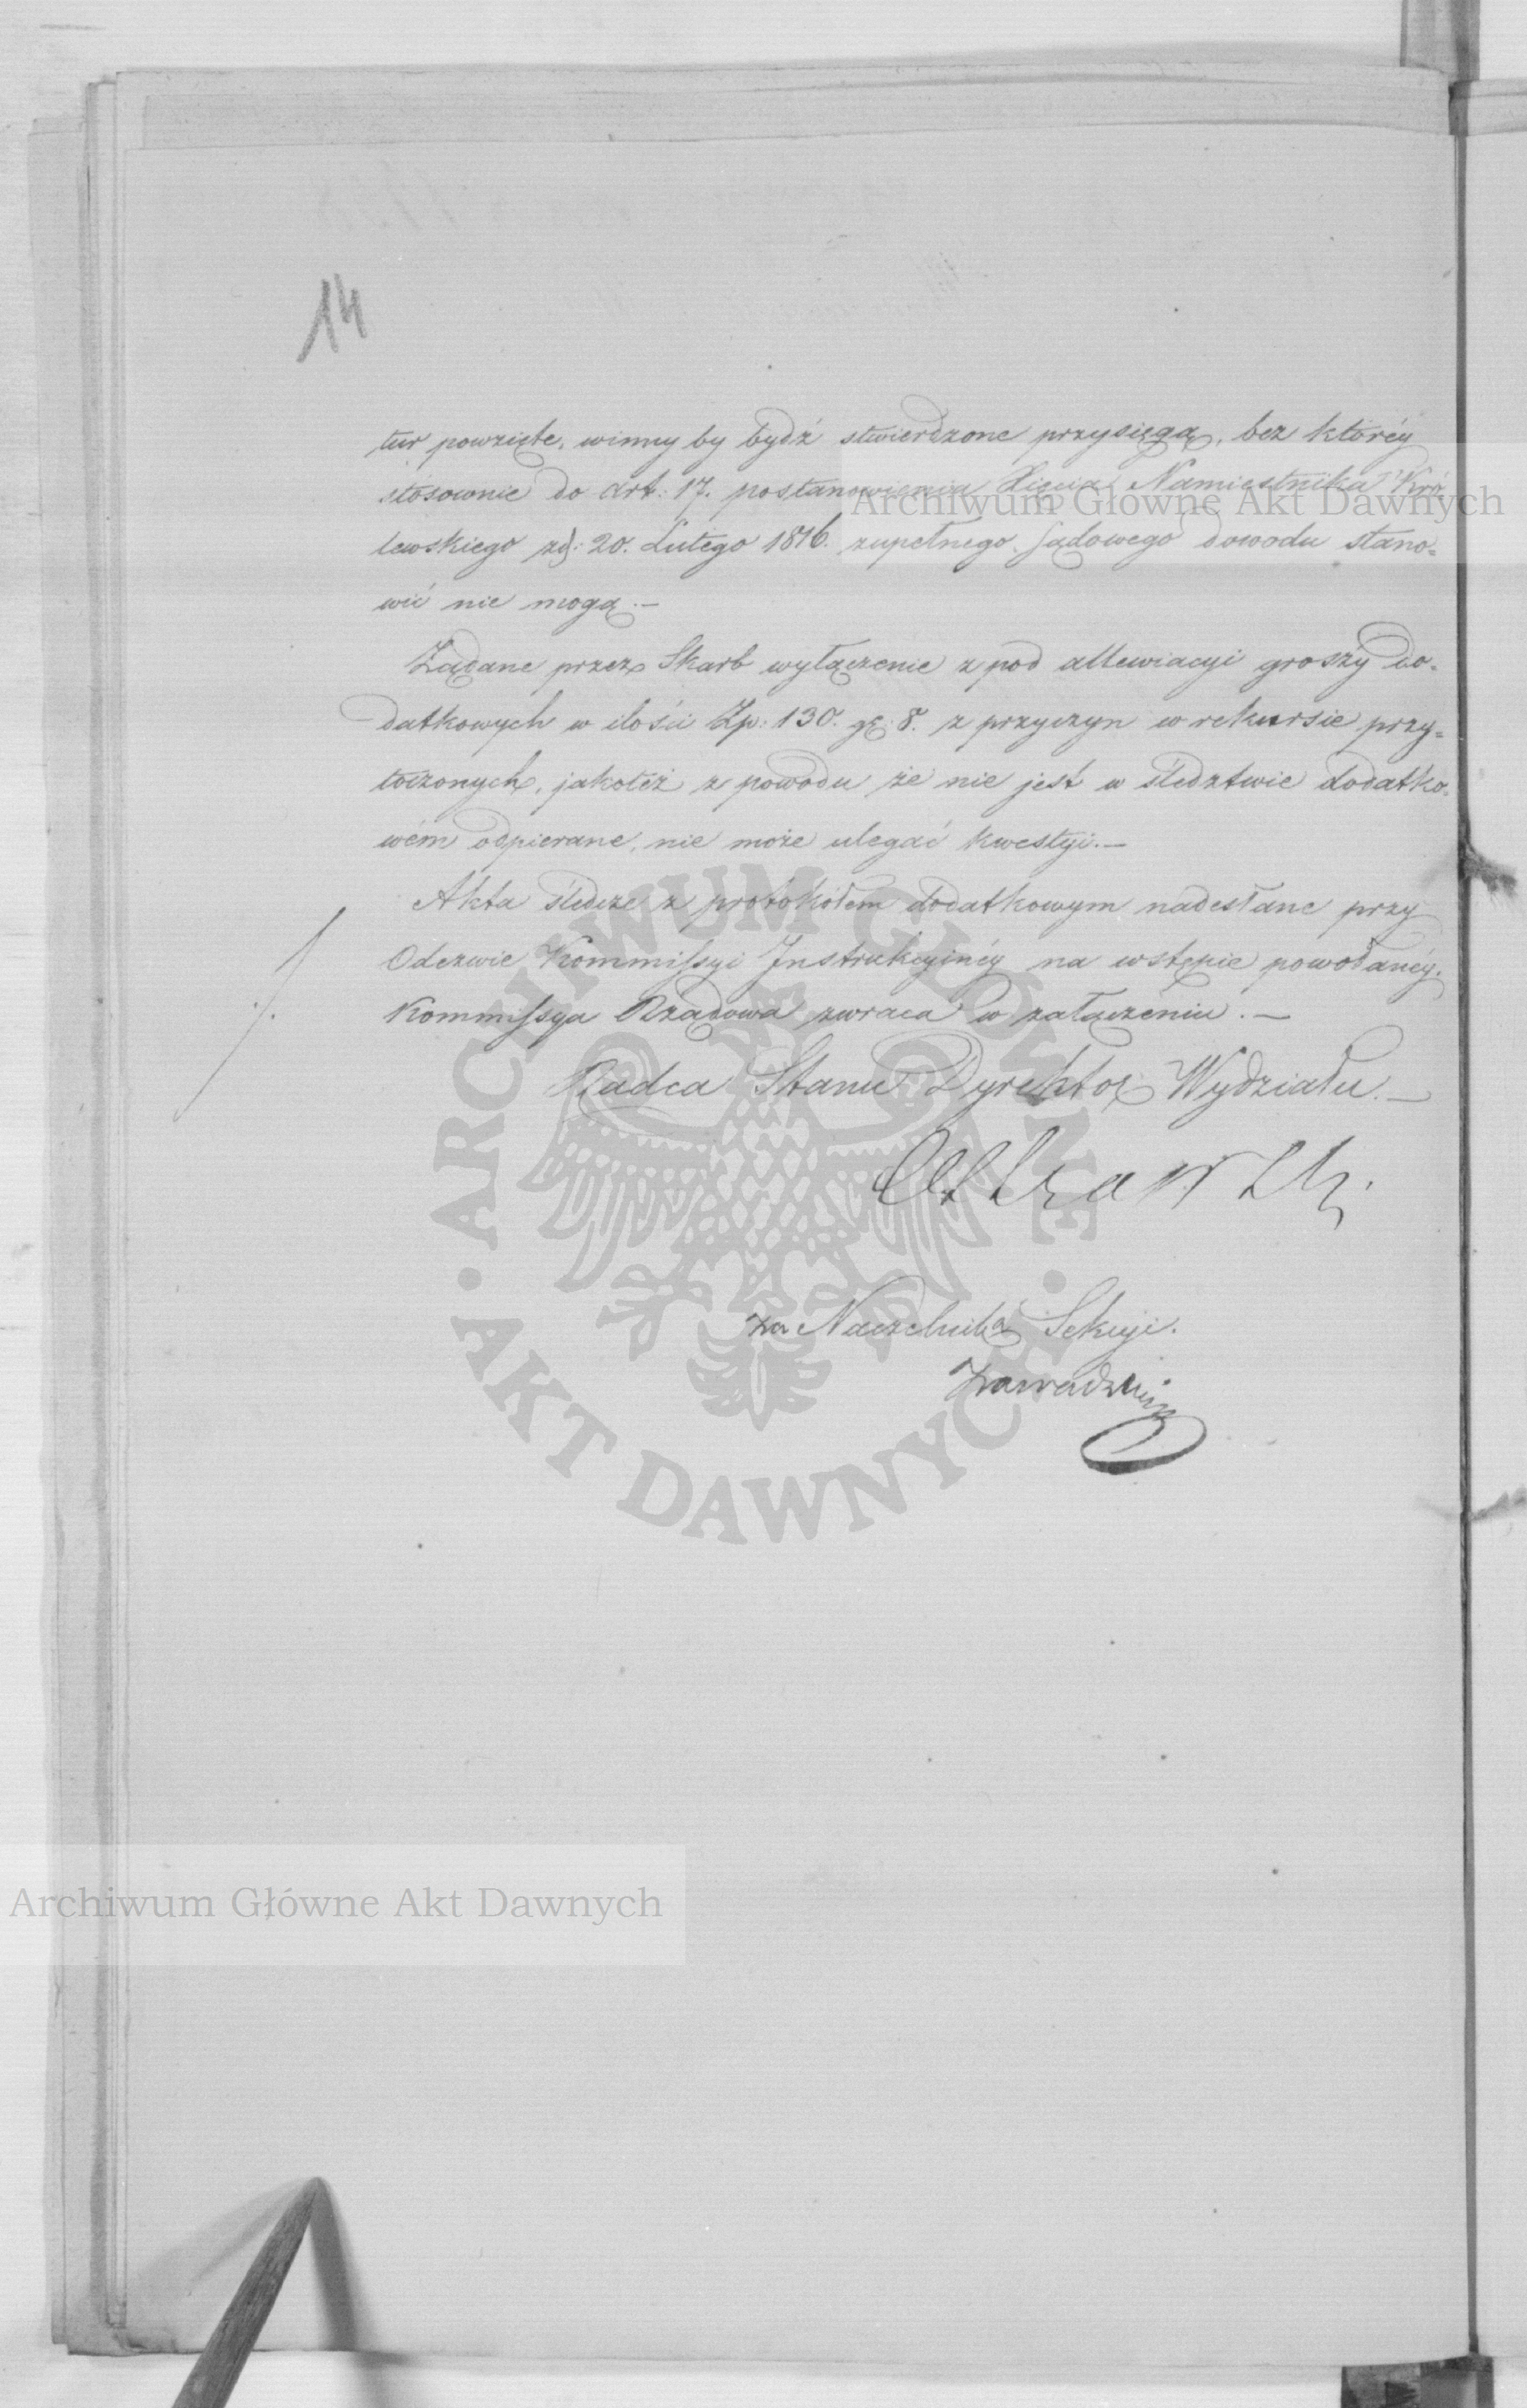 14
tur powzięte, winny by bydź stwierdzone przysięgą, bez któréy
stosownie do Art: 17. postanowienia Xięcia Namiestnika Kró
lewskiego zd: 20. Lutego 1816. zupełnego Sądowego dowodu stano=
wić nie mogą.—
Żądane przez Skarb wyłączenie z pod allewiacyi groszy do=
datkowych w ilości Zp: 130. gr: 8. z przyczyn w rekursie przy=
toczonych, jakoteż z powodu że nie jest w śledztwie dodatko=
wém odpierane, nie może ulegać kwestyi.—
Akta śledcze z protokółem dodatkowym nadesłane przy
Odezwie Kommissyi Instrukcyinéy na wstępie powołanéy.
Kommissya Rządowa zwraca w załączeniu.—
Radca Stanu Dyrektor Wydziału.—
za Naczelnika Sekcyi.
Zawadzki
Archiwum Główne Akt Dawnych
ARCHIWUM GŁÓWNE
· AKT DAWNYCH ·
Archiwum Główne Akt Dawnych